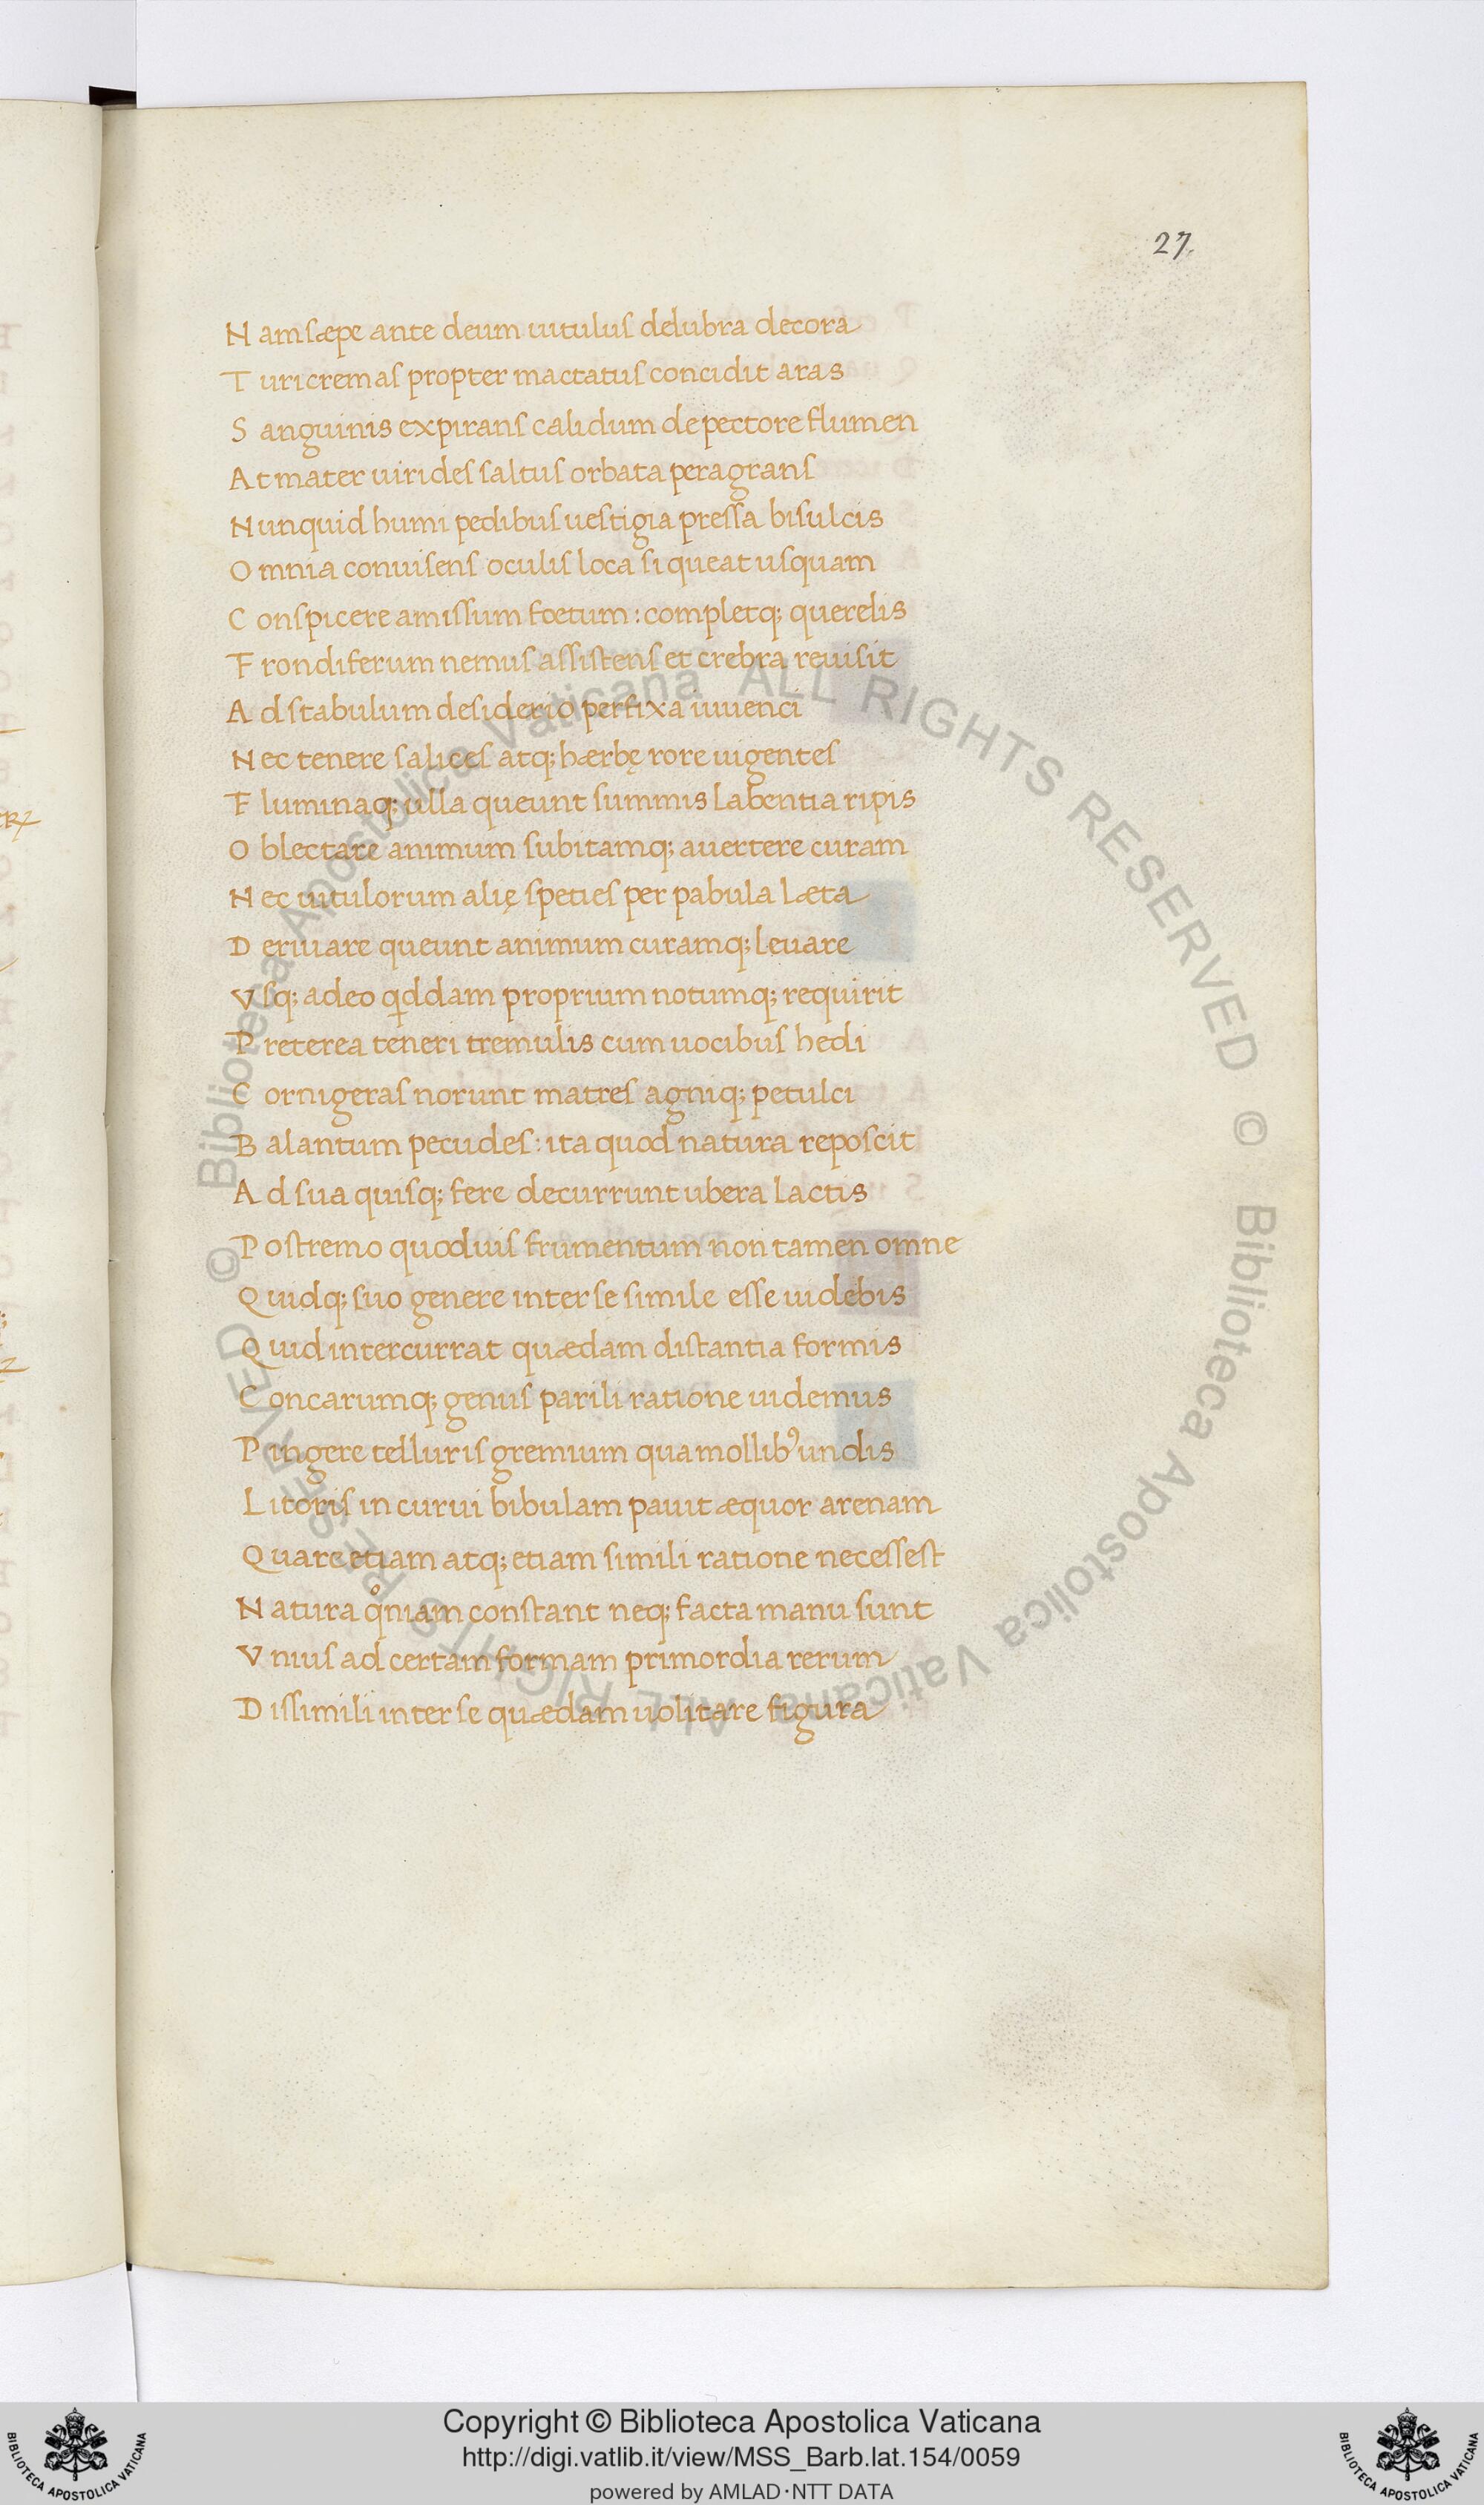 27.
N am sæpe ante deum uitulus delubra decora
T uricremas propter mactatus concidit aras
S anguinis expirans calidum de pectore flumen
A t mater uirides saltus orbata peragrans
N unquid humi pedibus uestigia pressa bisulcis
O mnia conuisens oculis loca si queat usquam
C onspicere amissum foetum: completq; querelis
F rondiferum nemus assistens et crebra reuisit
A d stabulum desiderio perfixa iuuenci
N ec tenere salices atq; hærbę rore uigentes
F luminaq; ulla queunt summis labentia ripis
O blectare animum subitamq; auertere curam
N ec uitulorum alię speties per pabula læta
D eriuare queunt animum curamq; leuare
V sq; adeo qddam proprium notumq; requirit
P reterea teneri tremulis cum uocibus hedi
C ornigeras norunt matres agniq; petulci
B alantum pecudes: ita quod natura reposcit
A d sua quisq; fere decurrunt ubera lactis
P ostremo quoduis frumentum non tamen omne
Q uidq; suo genere inter se simile esse uidebis
Q uid intercurrat quædam distantia formis
C oncarumq; genus parili ratione uidemus
P ingere telluris gremium qua mollibꝰ undis
L itoris in curui bibulam pauit æquor arenam
Q uare etiam atq; etiam simili ratione necessest
N atura qͦniam constant neq; facta manu sunt
V nius ad certam formam primordia rerum
D issimili inter se quædam uolitare figura
© Biblioteca Apostolica Vaticana ALL RIGHTS RESERVED © Biblioteca Apostolica Vaticana ALL RIGHTS RESERVED
Copyright © Biblioteca Apostolica Vaticana
http://digi.vatlib.it/view/MSS_Barb.lat.154/0059
powered by AMLAD·NTT DATA
BIBLIOTECA APOSTOLICA VATICANA
BIBLIOTECA APOSTOLICA VATICANA